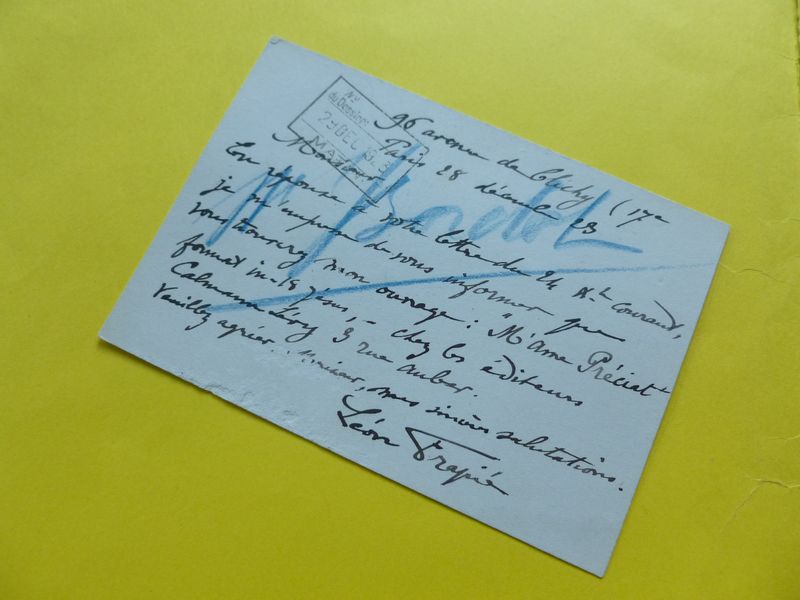 No
du Dossier
29 DEC 1923
96 avenue de Clichy (17e
Paris 28 décembre 23
Monsieur
En réponse à votre lettre du 24 Ct courant,
je m'empresse de vous informer que
vous trouverez mon ouvrage : "Mme Préciat"
format in-18 jésus, - chez les éditeurs
Calmann Lévy 3 rue Auber.
Veuillez agréer, Monsieur, mes sincères salutations.
Léon Frapié